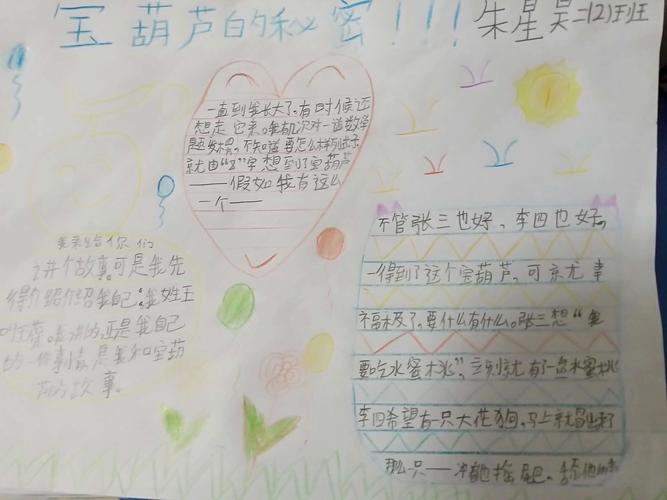 宝葫芦的秘密!!!
朱星昊二(2)班
一直到我长大了,有时候还
想起它来。我有几次对一道数学
题发楞,不知道要怎么样列式子,
就由“8”字想到了宝葫芦
——假如我有这么
一个——
我来给你们
讲个故事。可是我先
得介绍介绍我自己:我姓王
叫王葆。我讲的,正是我自己
的一件事情,是我和宝葫
芦的故事。
不管张三也好,李四也好,
一得到了这个宝葫芦,可就幸
福极了,要什么有什么。张三想“我
要吃水蜜桃”,立刻就有了一盘水蜜桃
李四希望有一只大花狗,马上就冒出来了
那么一只——冲他摇尾巴,舔他的